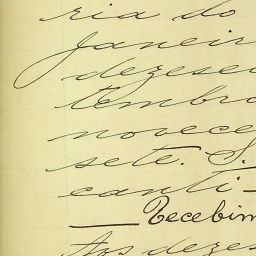 ria do
Janeir
dezesei
tembro
novece
sete. S.
canti-
Recebim
Aos dezes